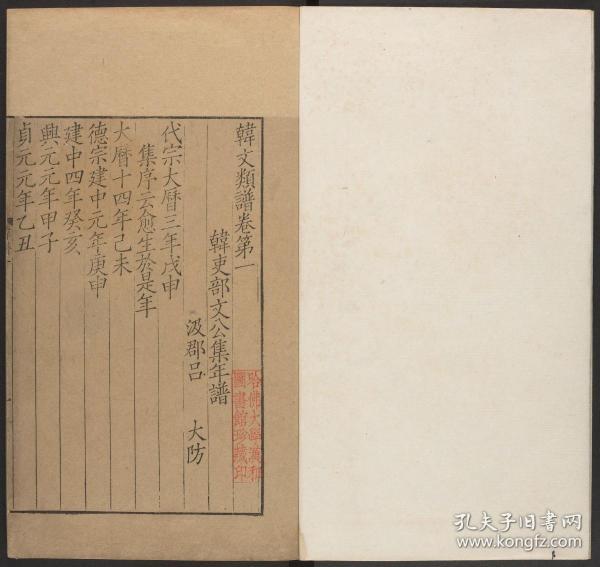 韓文類譜卷第一
韓吏部文公集年譜
汲郡呂 大防
代宗大曆三年戊申
集序云愈生於是年
大曆十四年己未
德宗建中元年庚申
建中四年癸亥
興元元年甲子
貞元元年乙丑
哈佛大學漢和
圖書館珍藏印
孔夫子旧书网
www.kongfz.com